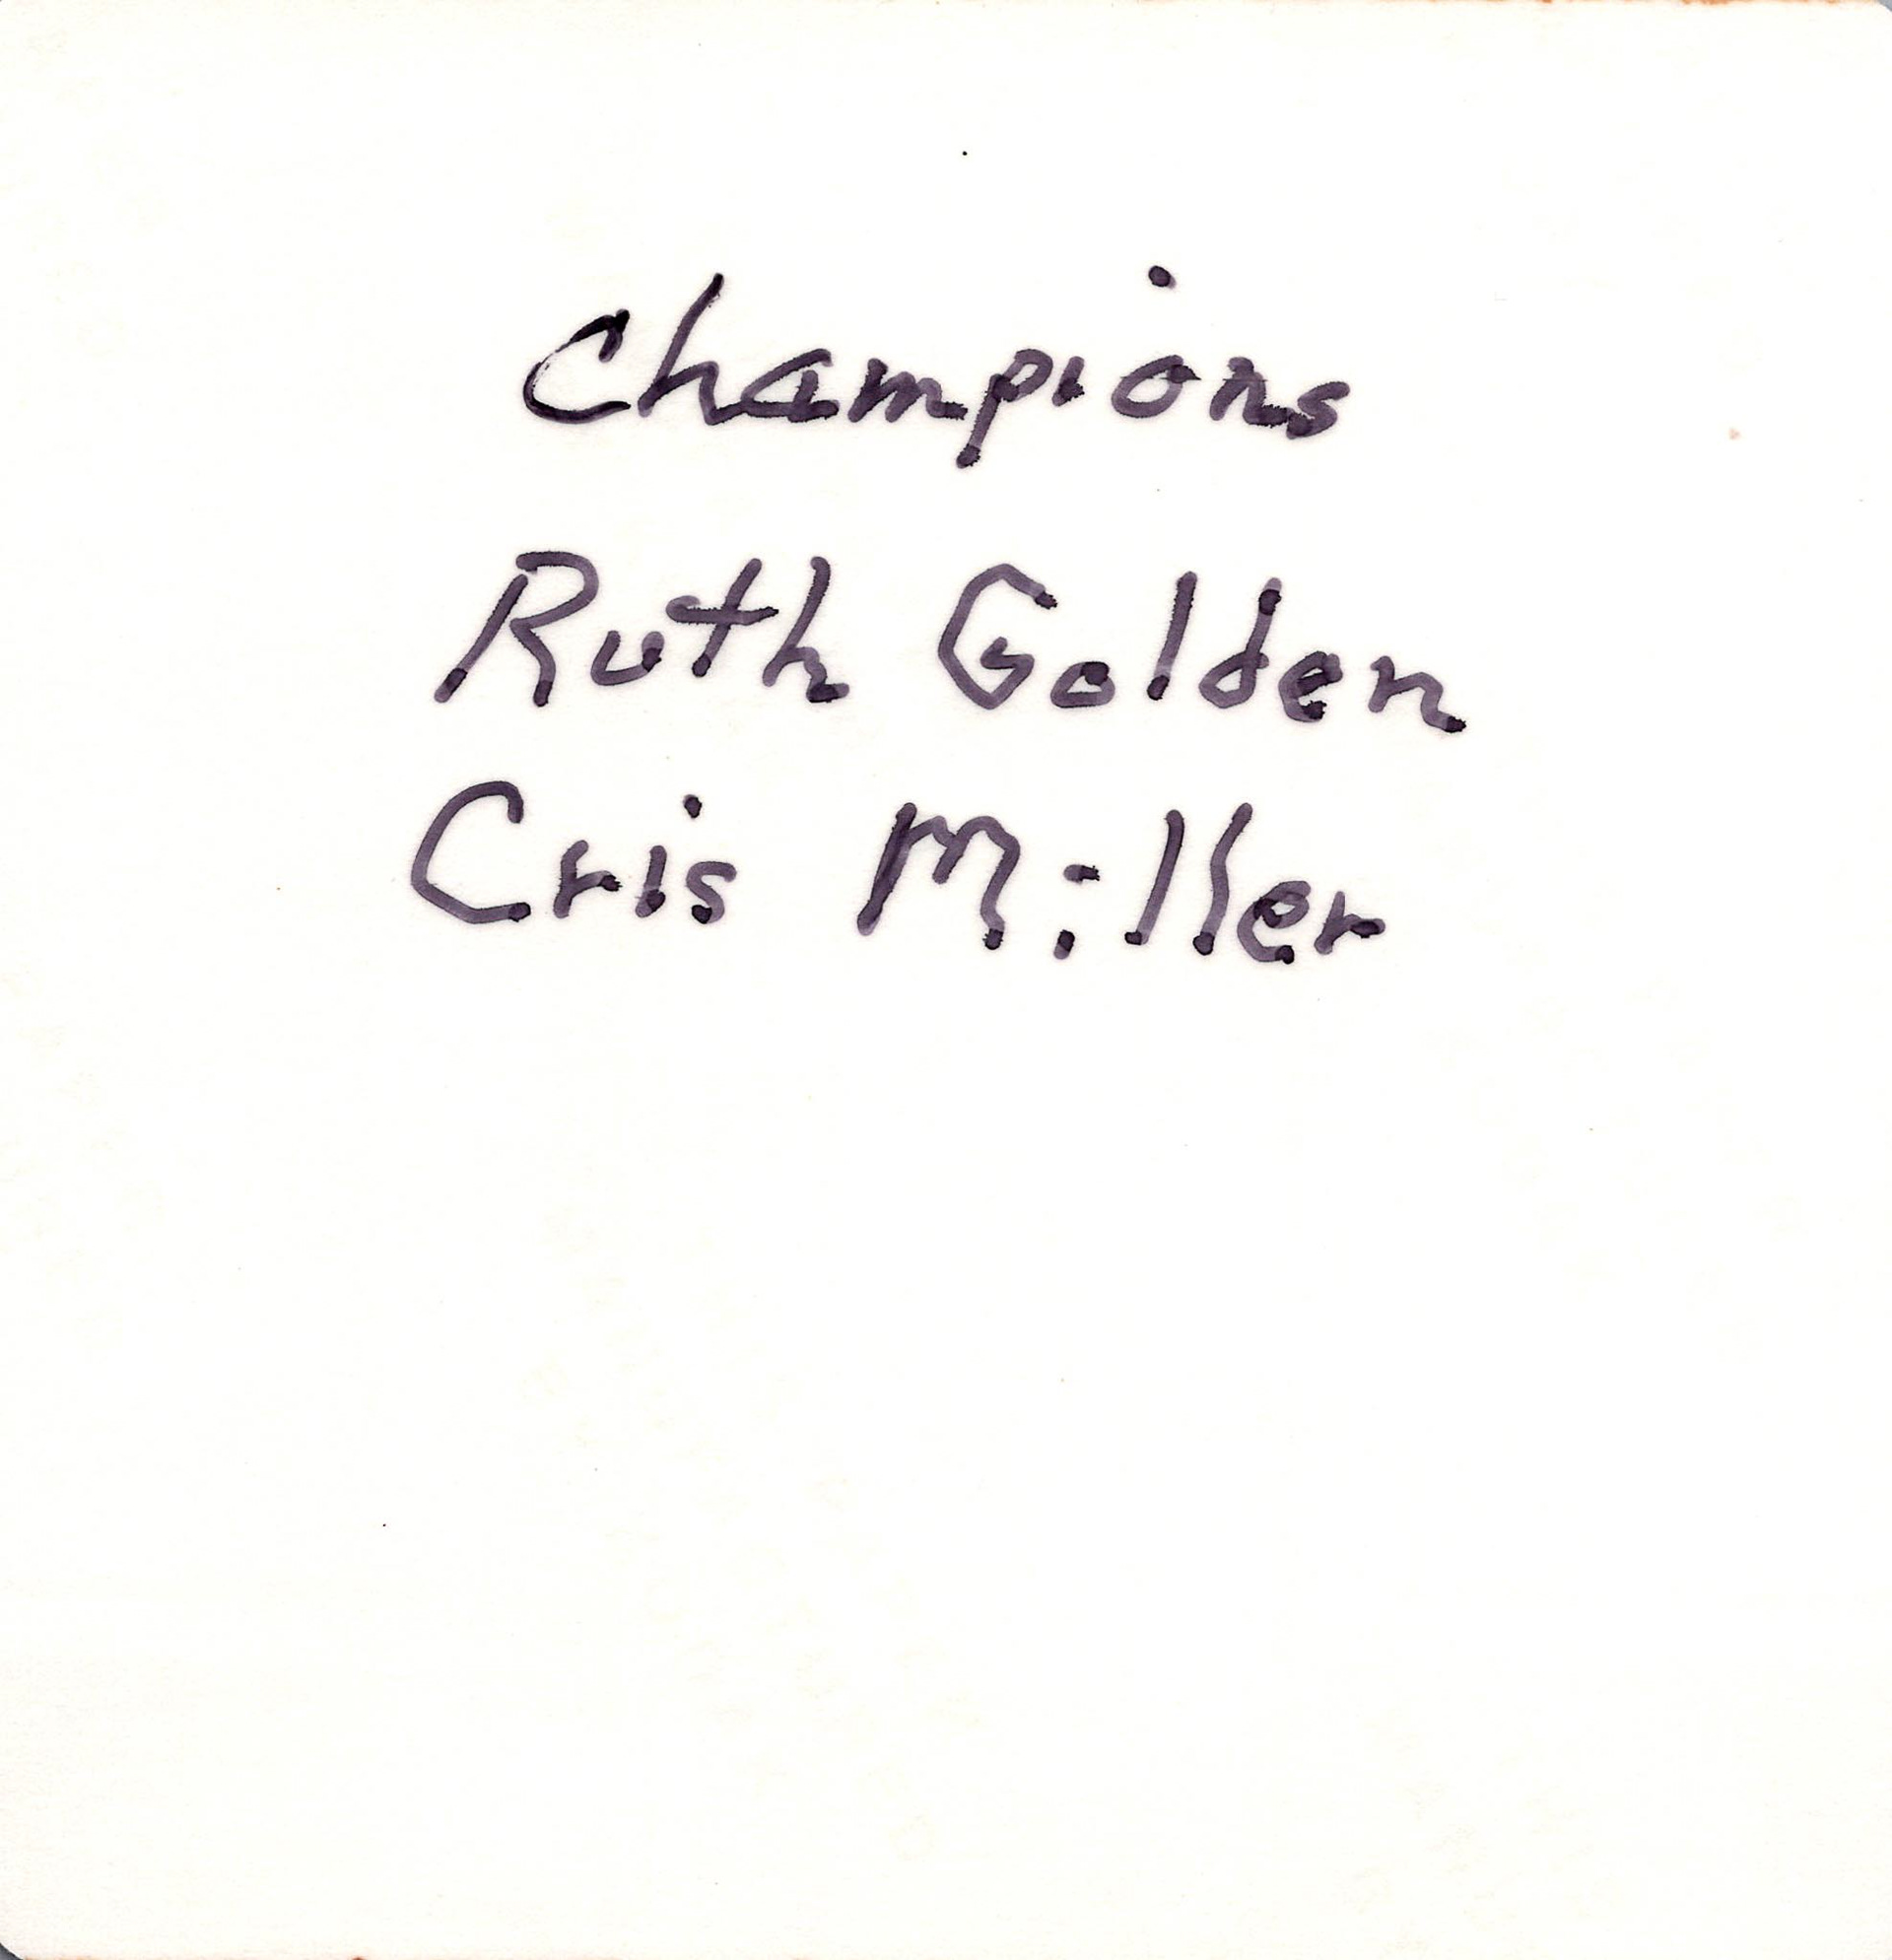 Champions
Ruth Golden
Cris Miller